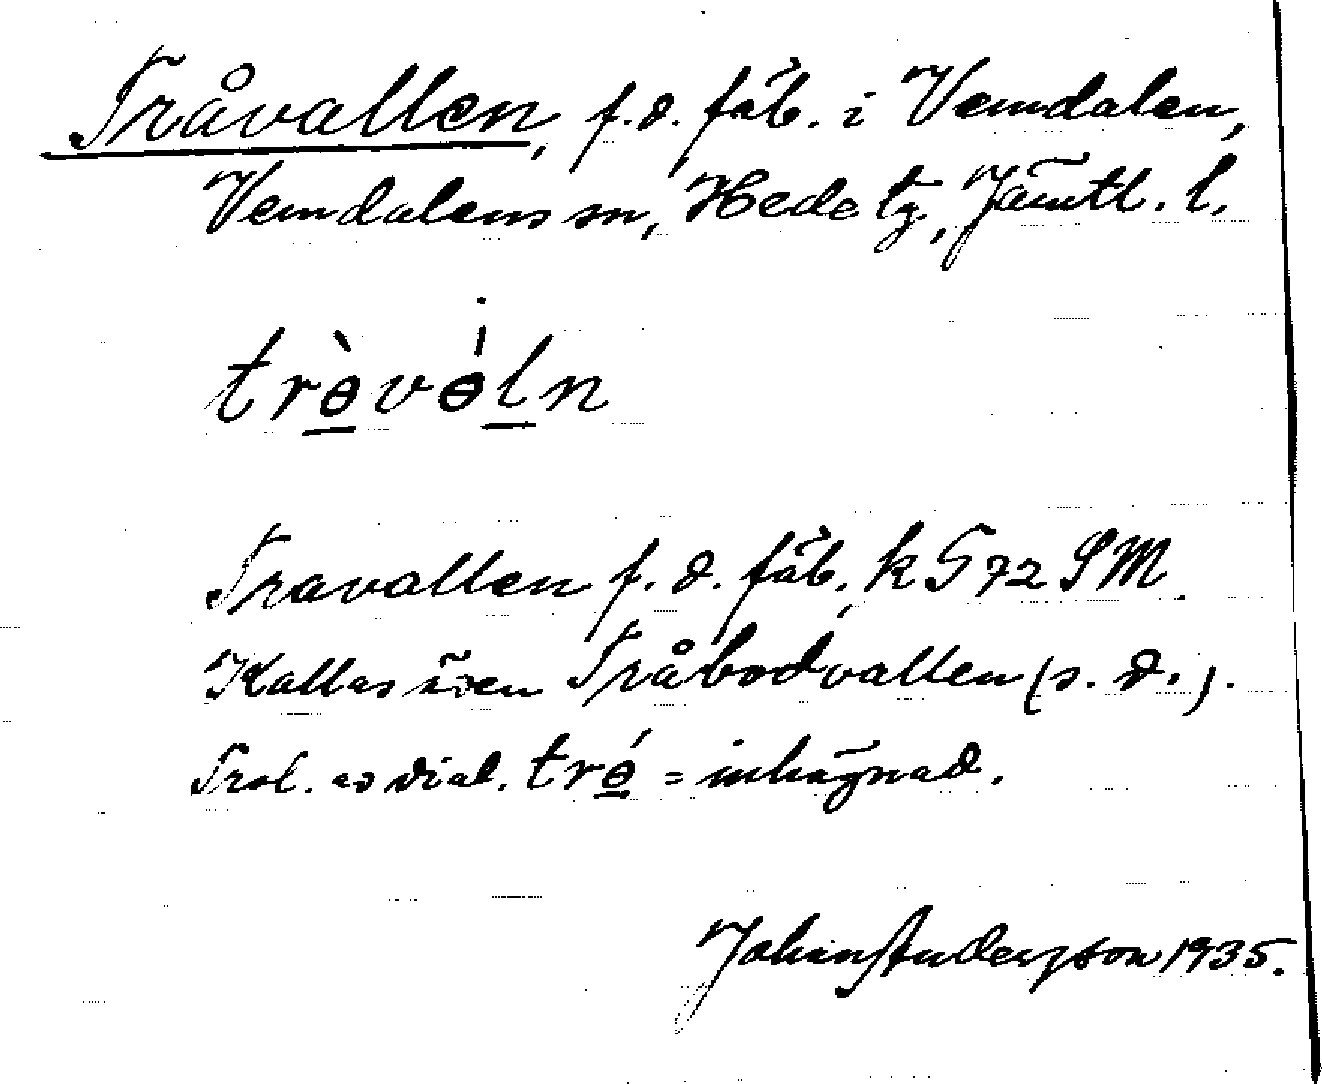 Tråvallen, f.d. fäb. i Vemdalen,
Vemdalens sn, Hede tg, Jämtl. l.
trɵ̀vɵ́ln
Travallen f. d. fäb. k G 72 SM.
Kallas även Tråbodvallen (s. d.).
Trol. av dial. trɵ́ = inhägnad.
Johan Andersson 1935.